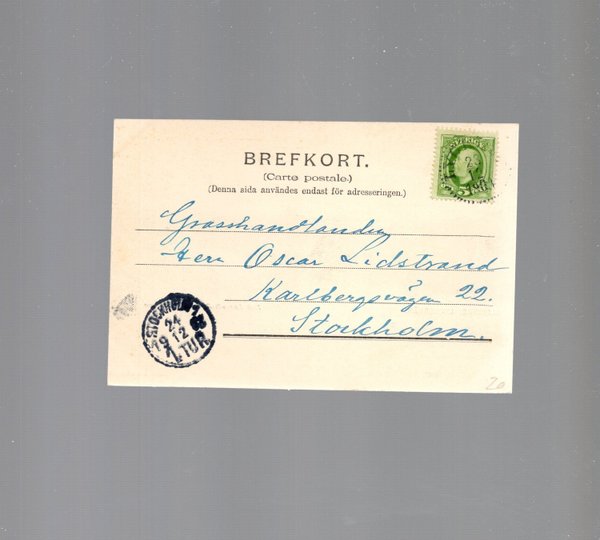 BREFKORT.
(Carte postale.)
(Denna sida användes endast för adresseringen.)
SVERIGE
5
Grosshandlanden
Herr Oscar Lidstrand
Karlbergsvägen 22.
Stockholm.
STOCKHOLM
24
19 12
1. TUR
20